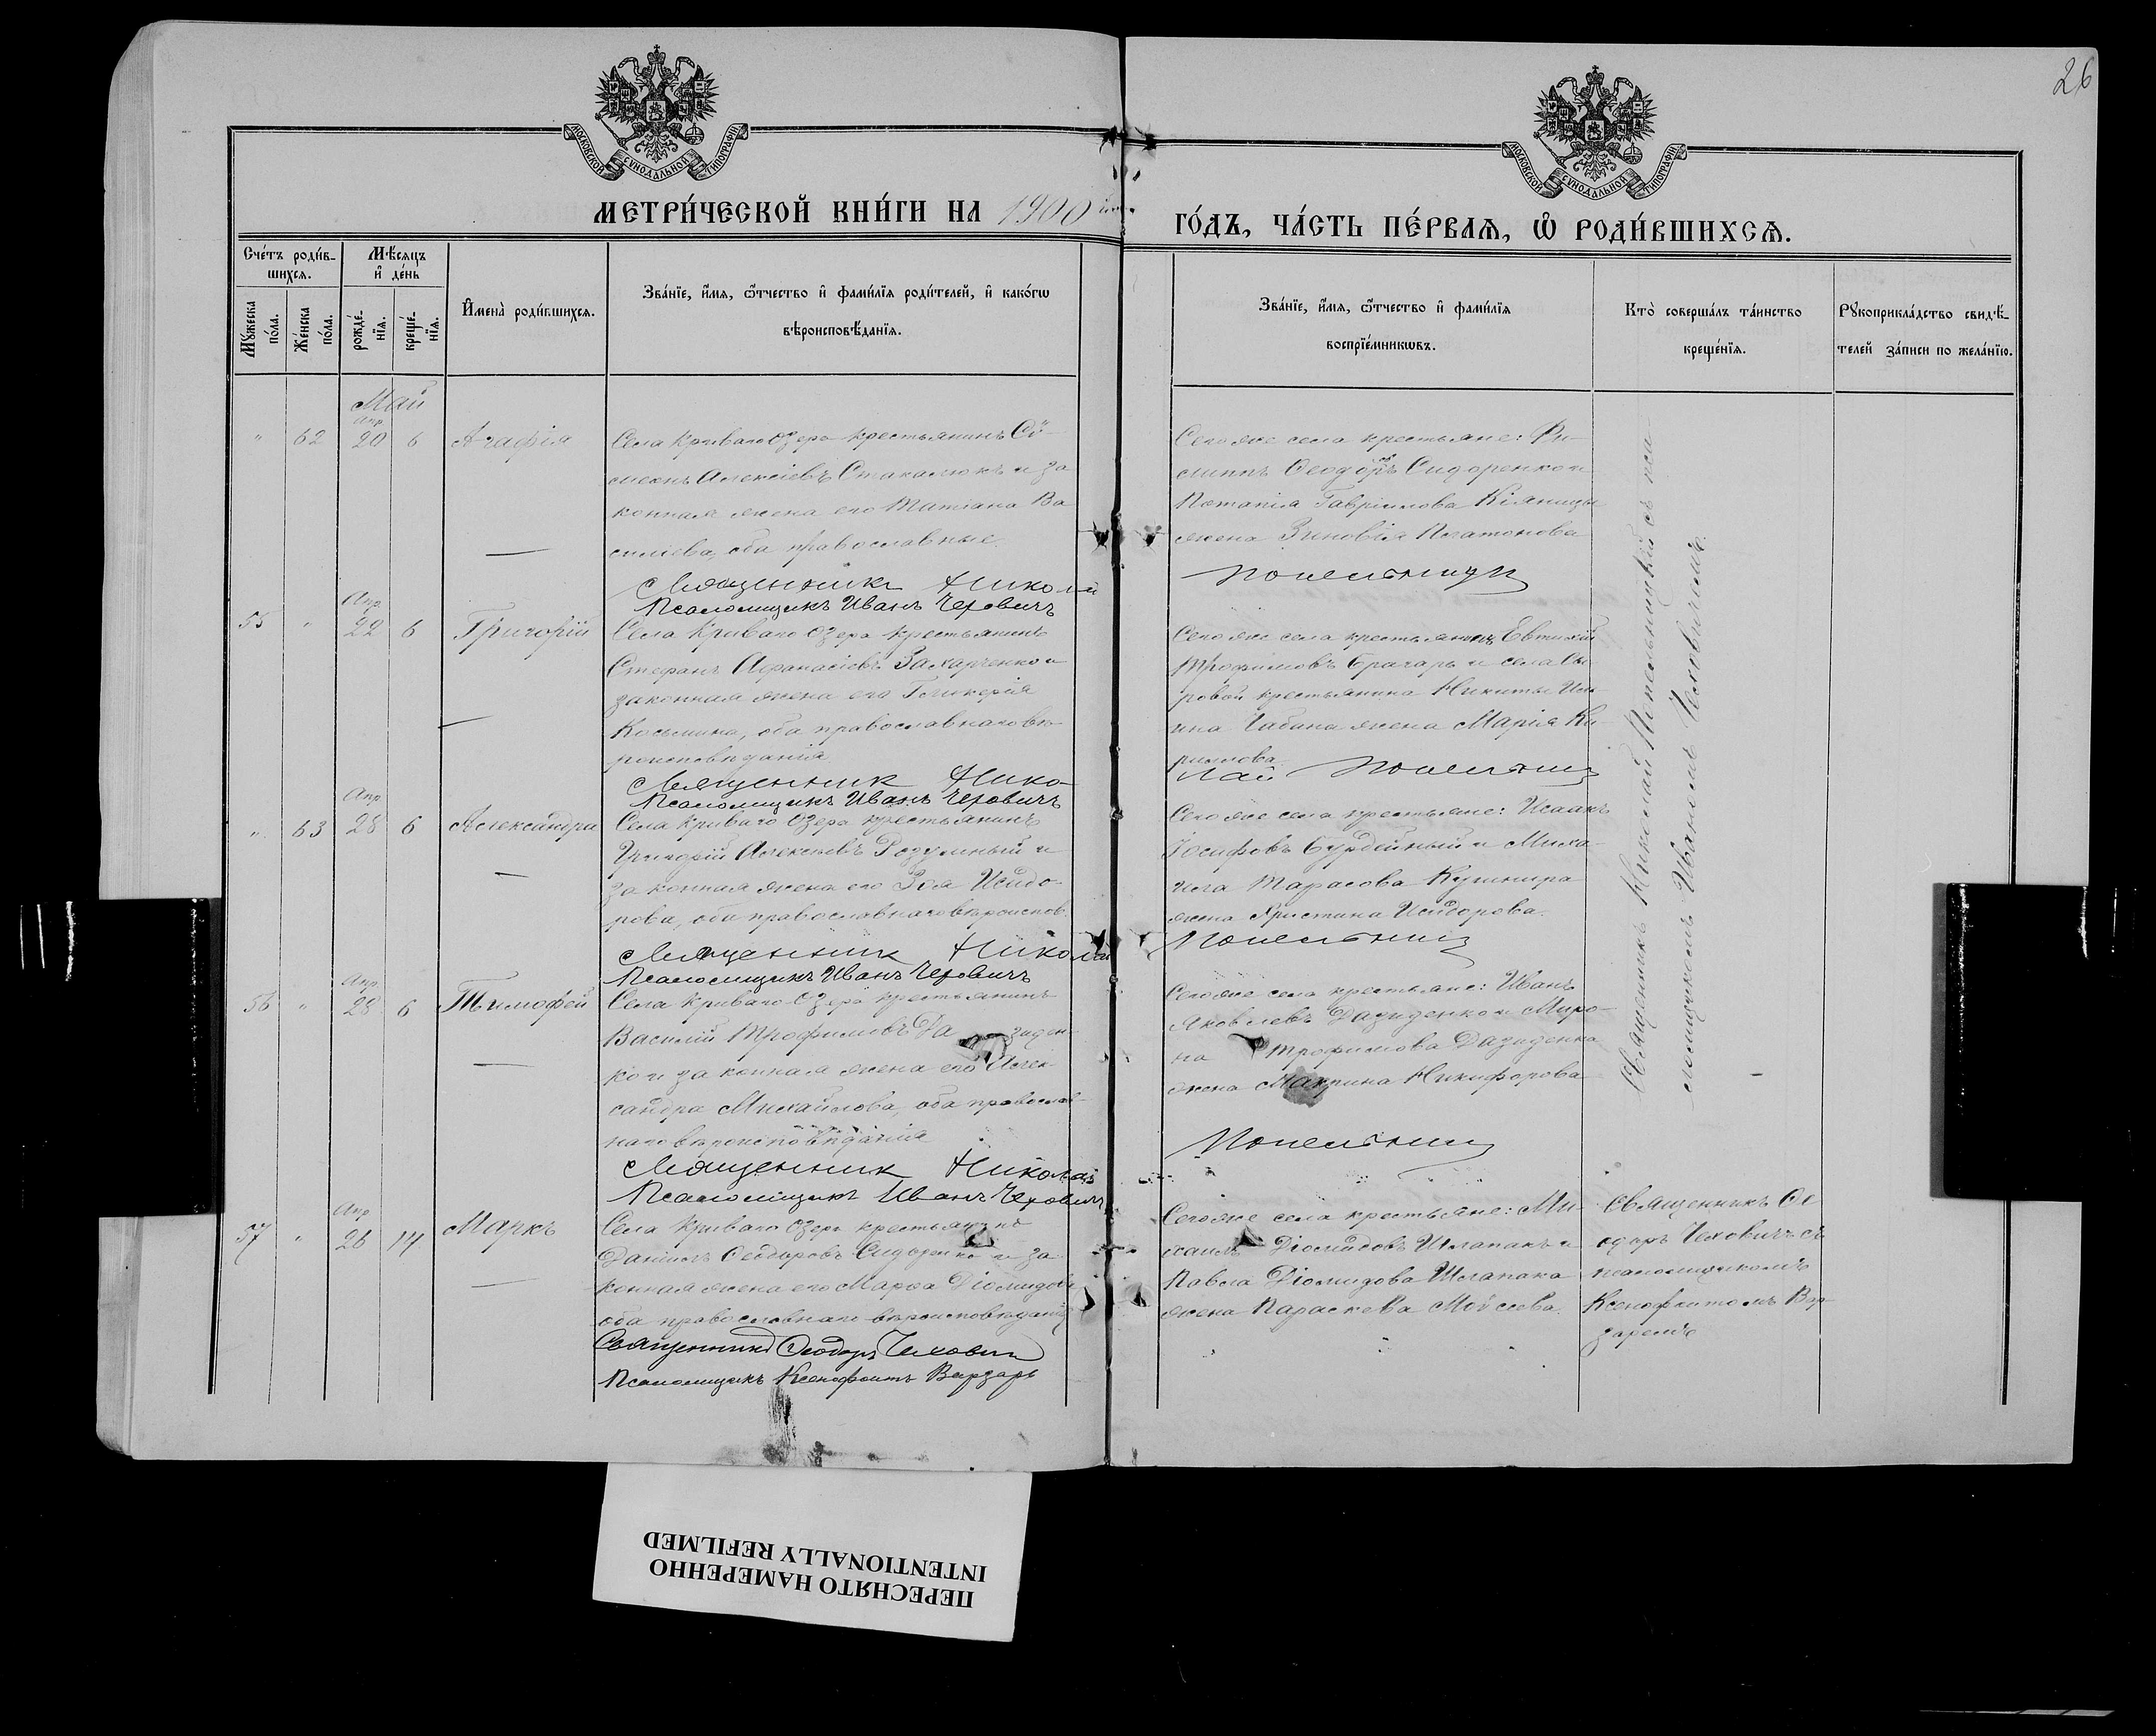 26
МОСКОВСКОЙ СѴНОДАЛЬНОЙ ТИПОГРАФІИ
МОСКОВСКОЙ СѴНОДАЛЬНОЙ ТИПОГРАФІИ
МЕТРИ́ЧЕСКОЙ КНИ́ГИ НА 1900
ГО́ДЪ, ЧА́СТЬ ПЕ́РВАѦ, Ѡ РОДИ́ВШИХСѦ.
Сче́тъ роди́в-
шихсѧ.
Мѣ́сѧцъ
и҆ де́нь
Мꙋ́жеска
по́ла.
Же́нска
по́ла.
рожде́-
нїѧ.
креще́-
нїѧ.
И҆мена̀ роди́вшихсѧ.
Зва́нїе, и҆́мѧ, ѻ҆́тчество и҆ фами́лїѧ роди́телей, и҆ како́гѡ
вѣроисповѣ́данїѧ.
Зва́нїе, и҆́мѧ, ѻ҆́тчество и҆ фами́лїѧ
воспрїе́мникѡвъ.
Кто̀ соверша́лъ та́инство
креще́нїѧ.
Рꙋкоприкла́дство свидѣ́-
телей за́писи по жела́нїю.
Май
Апр
" 62 20 6 Агафія
Села Криваго Озера крестьянинъ Си-
меонъ Алексіевъ Стакалюкъ и за
конная жена его Татіана Ва
силіева, оба православные
Священникъ Николай
Псаломщикъ Иванъ Чехович
Сего же села крестьяне: Фи-
липпъ Ѳеодоровъ Сидоренко и
Потапія Гавріилова Кіяницы
жена Зиновія Платонова
Попельницк
Апр
55 " 22 6 Григорій
Села Криваго Озера крестьянинъ
Стефанъ Аѳанасіевъ Захарченко и
законная жена его Гликерія
Косьмина, оба православнаго вѣ-
роисповѣданія
Священник Нико-
Псаломщикъ Иванъ Чеховичъ
Сего же села крестьянинъ Евтихій
Трофимовъ Брагарь и села Сы
ровой крестьянина Никиты Иль
ина Чабана жена Марія Ки-
рилова
лай Попельниц
Апр
" 63 28 6 Александра
Села Криваго Озера крестьянинъ
Григорій Алексіевъ Розумный и
законная жена его Зоя Исидо-
рова, оба православнаго вѣроиспов.
Священник Николай
Псаломщикъ Иванъ Чеховичъ
Сего же села крестьяне: Исаакъ
Іосифовъ Бурдейный и Миха-
ила Тарасова Кушнира
жена Христина Исидорова.
Попельниц
Апр
56 " 28 6 Тимофей
Села Криваго Озера крестьянинъ
Василій Трофимовъ Да зиден-
ко и законная жена его Алек-
сандра Михайлова, оба православ-
наго вѣроисповѣданія
Священник Николай
Псаломщикъ Иванъ Чехович
Сего же села крестьяне: Иванъ
Яковлевъ Дазиденко и Миро-
на Трофимова Дазиденка
жена Макрина Никифорова
Попельниц
Священникъ Николай Попельницкій съ пса-
ломщикомъ Иваномъ Чеховичемъ.
Апр
57 " 26 14 Маркъ
Села Криваго Озера крестьянинъ
Даніилъ Ѳеодоровъ Сидоренко и за
конная жена его Марѳа Діомидова
оба православнаго вѣроисповѣданія
Священникъ Ѳеодоръ Чехович
Псаломщикъ Ксенофонтъ Варзарь
Сего же села крестьяне: Ми-
хаилъ Діомидовъ Шлапакъ и
Павла Діомидова Шлапака
жена Параскева Моѵсеева.
Священникъ Ѳе
одоръ Чеховичъ съ
псаломщикомъ
Ксенофонтомъ Вар
заремъ
ПЕРЕСНЯТО НАМЕРЕННО
INTENTIONALLY REFILMED